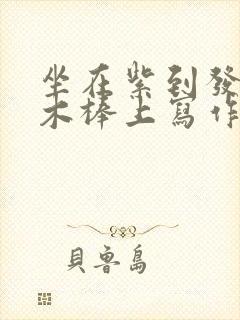 坐在紫到發
木棒上寫作
貝魯島